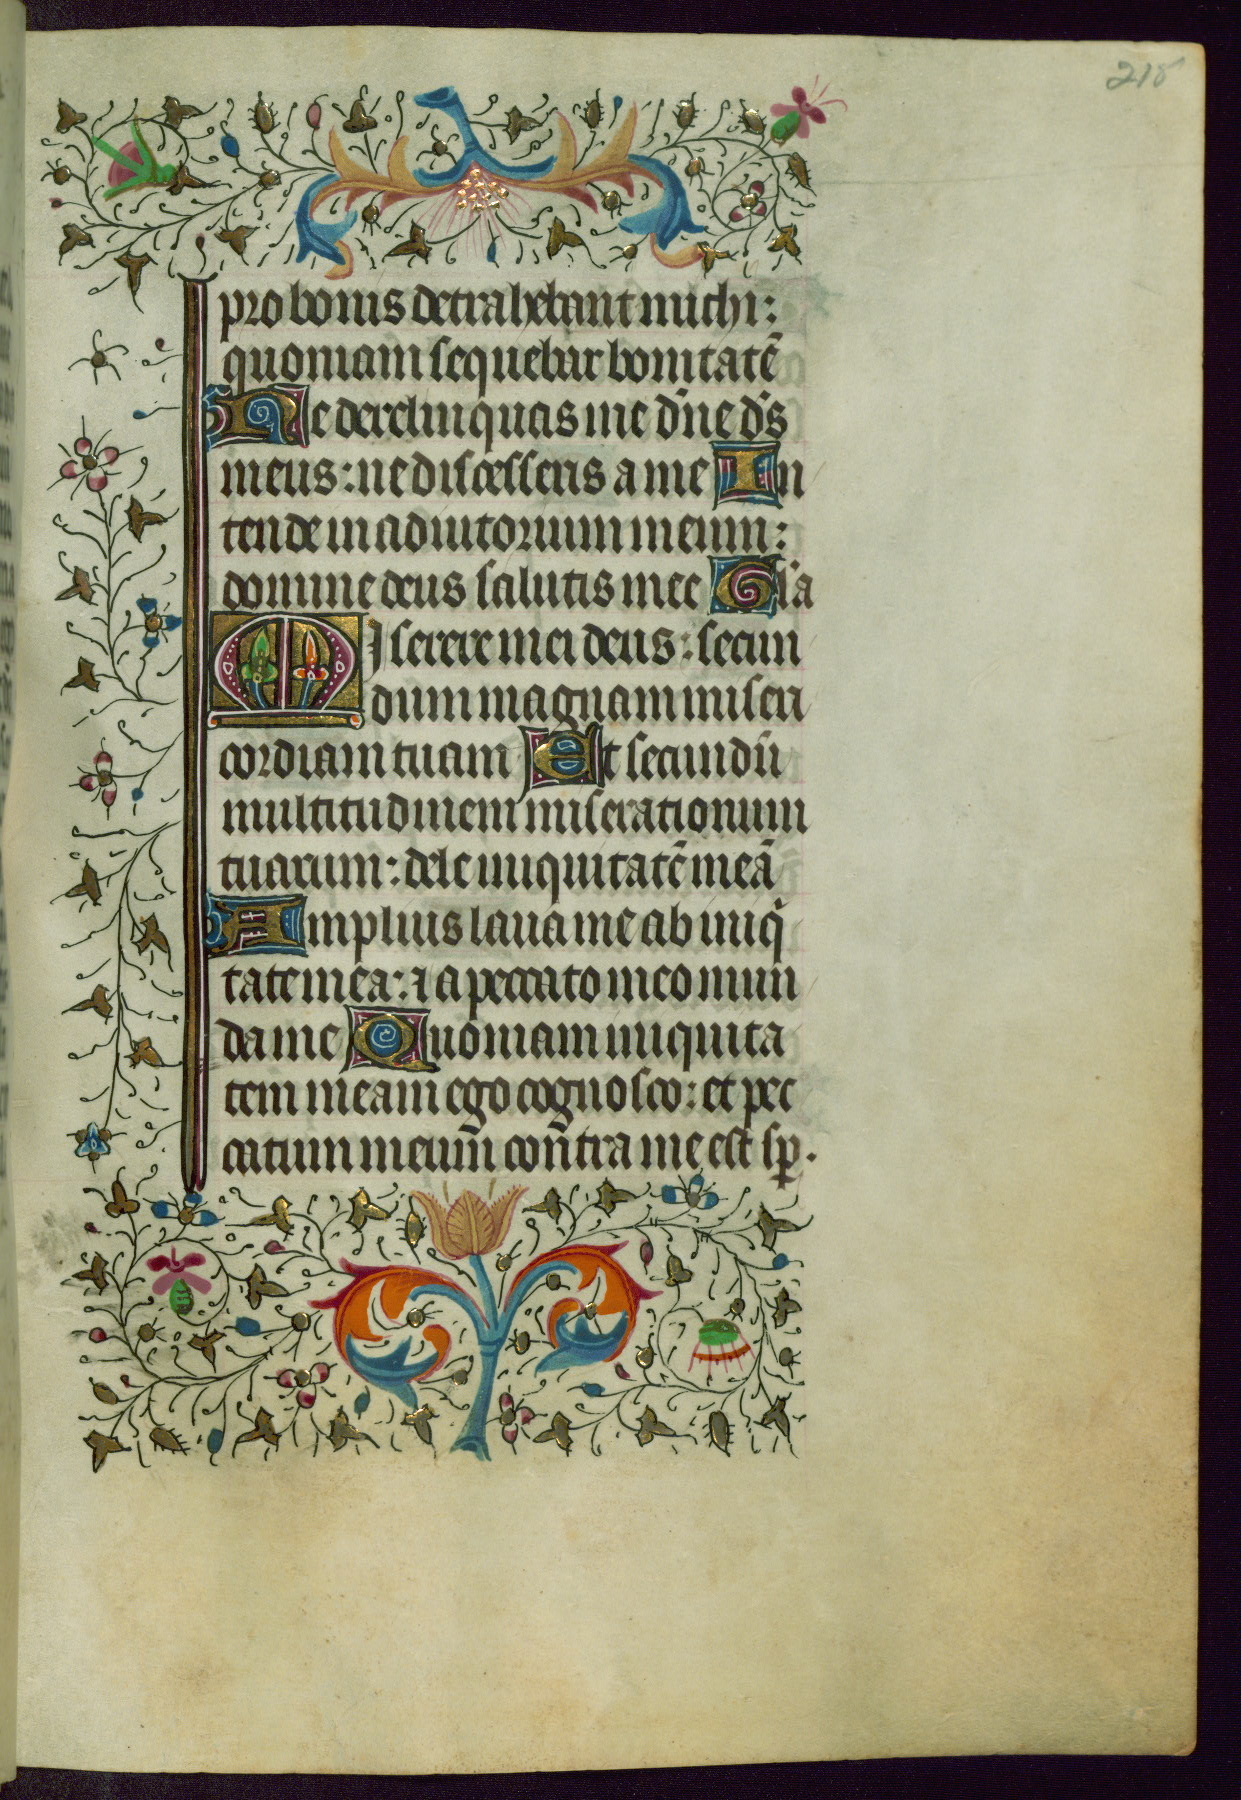 218
pro bonis detrahebant michi:
quoniam sequebar bonitatē
Ne derelinquas me dn̄e ds̄
meus: ne discesseris a me In
tende in adiutorium meum:
domine deus salutis mee Gl'a
Miserere mei deus: secun
dum magnam miseri
cordiam tuam Et secundū
multitudinem miserationum
tuarum: dele iniquitatē meā
Amplius laua me ab iniq
tate mea: ⁊ a peccato meo mun
da me Quoniam iniquita
tem meam ego cognosco: et pec
catum meum̄ con̄tra me est sp̄.